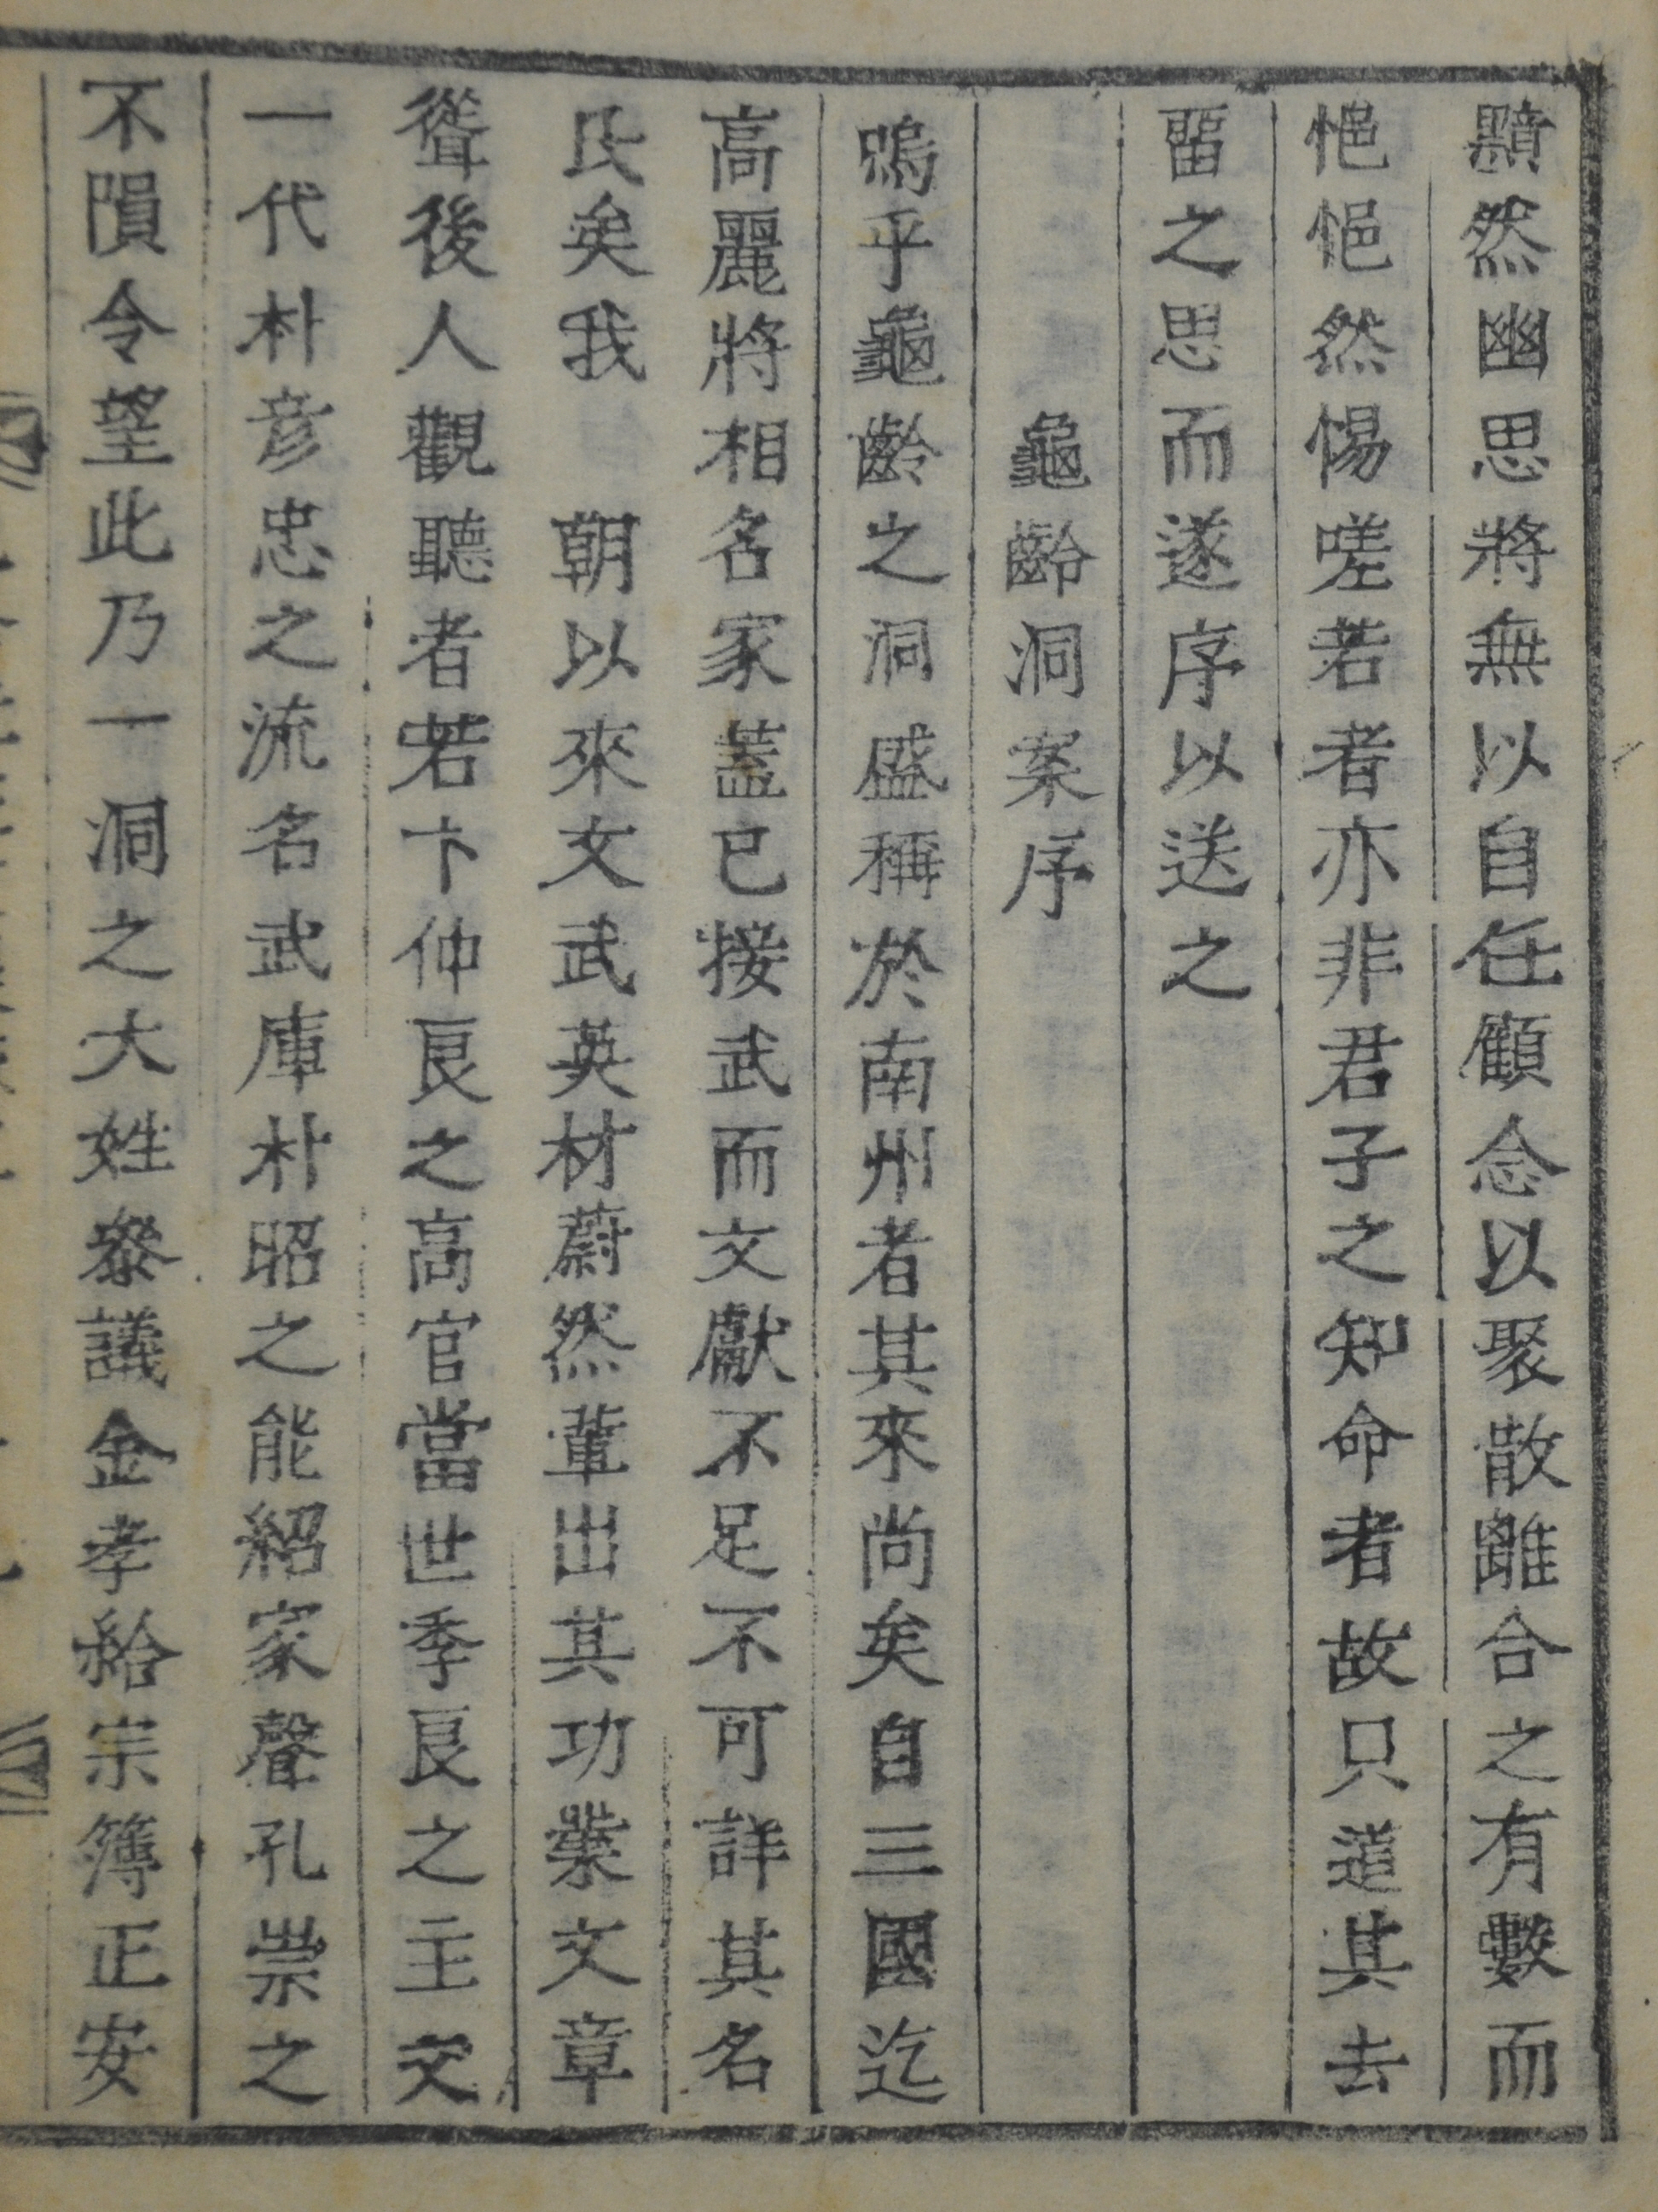 黯然幽思將無以自任顧念以聚散離合之有數而
悒悒然惕嗟若者亦非君子之知命者故只道其去
留之思而遂序以送之
龜齡洞案序
嗚乎龜齡之洞盛稱於南州者其來尚矣自三國迄
高麗將相名家蓋已接武而文獻不足不可詳其名
氏矣我 朝以來文武英材蔚然輩出其功業文章
聳後人觀聽者若卞仲良之高官當世季良之主文
一代朴彦忠之流名武庫朴昭之能紹家聲孔崇之
不隕令望此乃一洞之大姓叅議金孝給宗簿正安